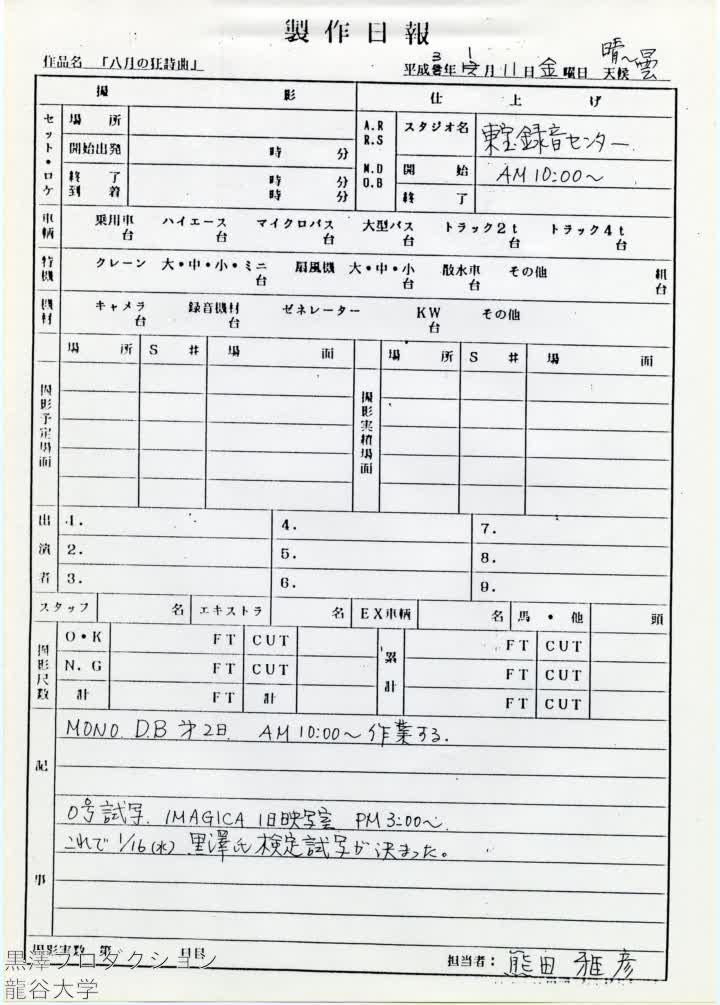 製作日報
作品名 「八月の狂詩曲」
平成3年1月11日金曜日 天候 晴〜曇
撮影 仕上げ
セット・ロケ
場所
開始出発 時 分
終了 時 分
到着 時 分
A.R
R.S
M.D
O.B
スタジオ名 東宝録音センター
開始 AM 10:00〜
終了
車輌 乗用車 台 ハイエース 台 マイクロバス 台 大型バス 台 トラック2t 台 トラック4t 台
特機 クレーン 大・中・小・ミニ 台 扇風機 大・中・小 台 散水車 台 その他 組 台
機材 キャメラ 台 録音機材 台 ゼネレーター KW 台 その他
撮影予定場面 場所 S# 場面
撮影実績場面 場所 S# 場面
出演者
1. 4. 7.
2. 5. 8.
3. 6. 9.
スタッフ 名 エキストラ 名 EX車輌 名 馬・他 頭
撮影尺数
O・K FT CUT 累計 FT CUT
N.G FT CUT FT CUT
計 FT 計 FT CUT
記事
MONO. D.B 第2日. AM 10:00〜 作業する.
0号試写. IMAGICA 1日映写室 PM 3:00〜.
これで 1/16(水) 黒澤氏 検定試写が決まった。
撮影実数 第 日目
担当者: 熊田 雅彦
黒澤プロダクション
龍谷大学